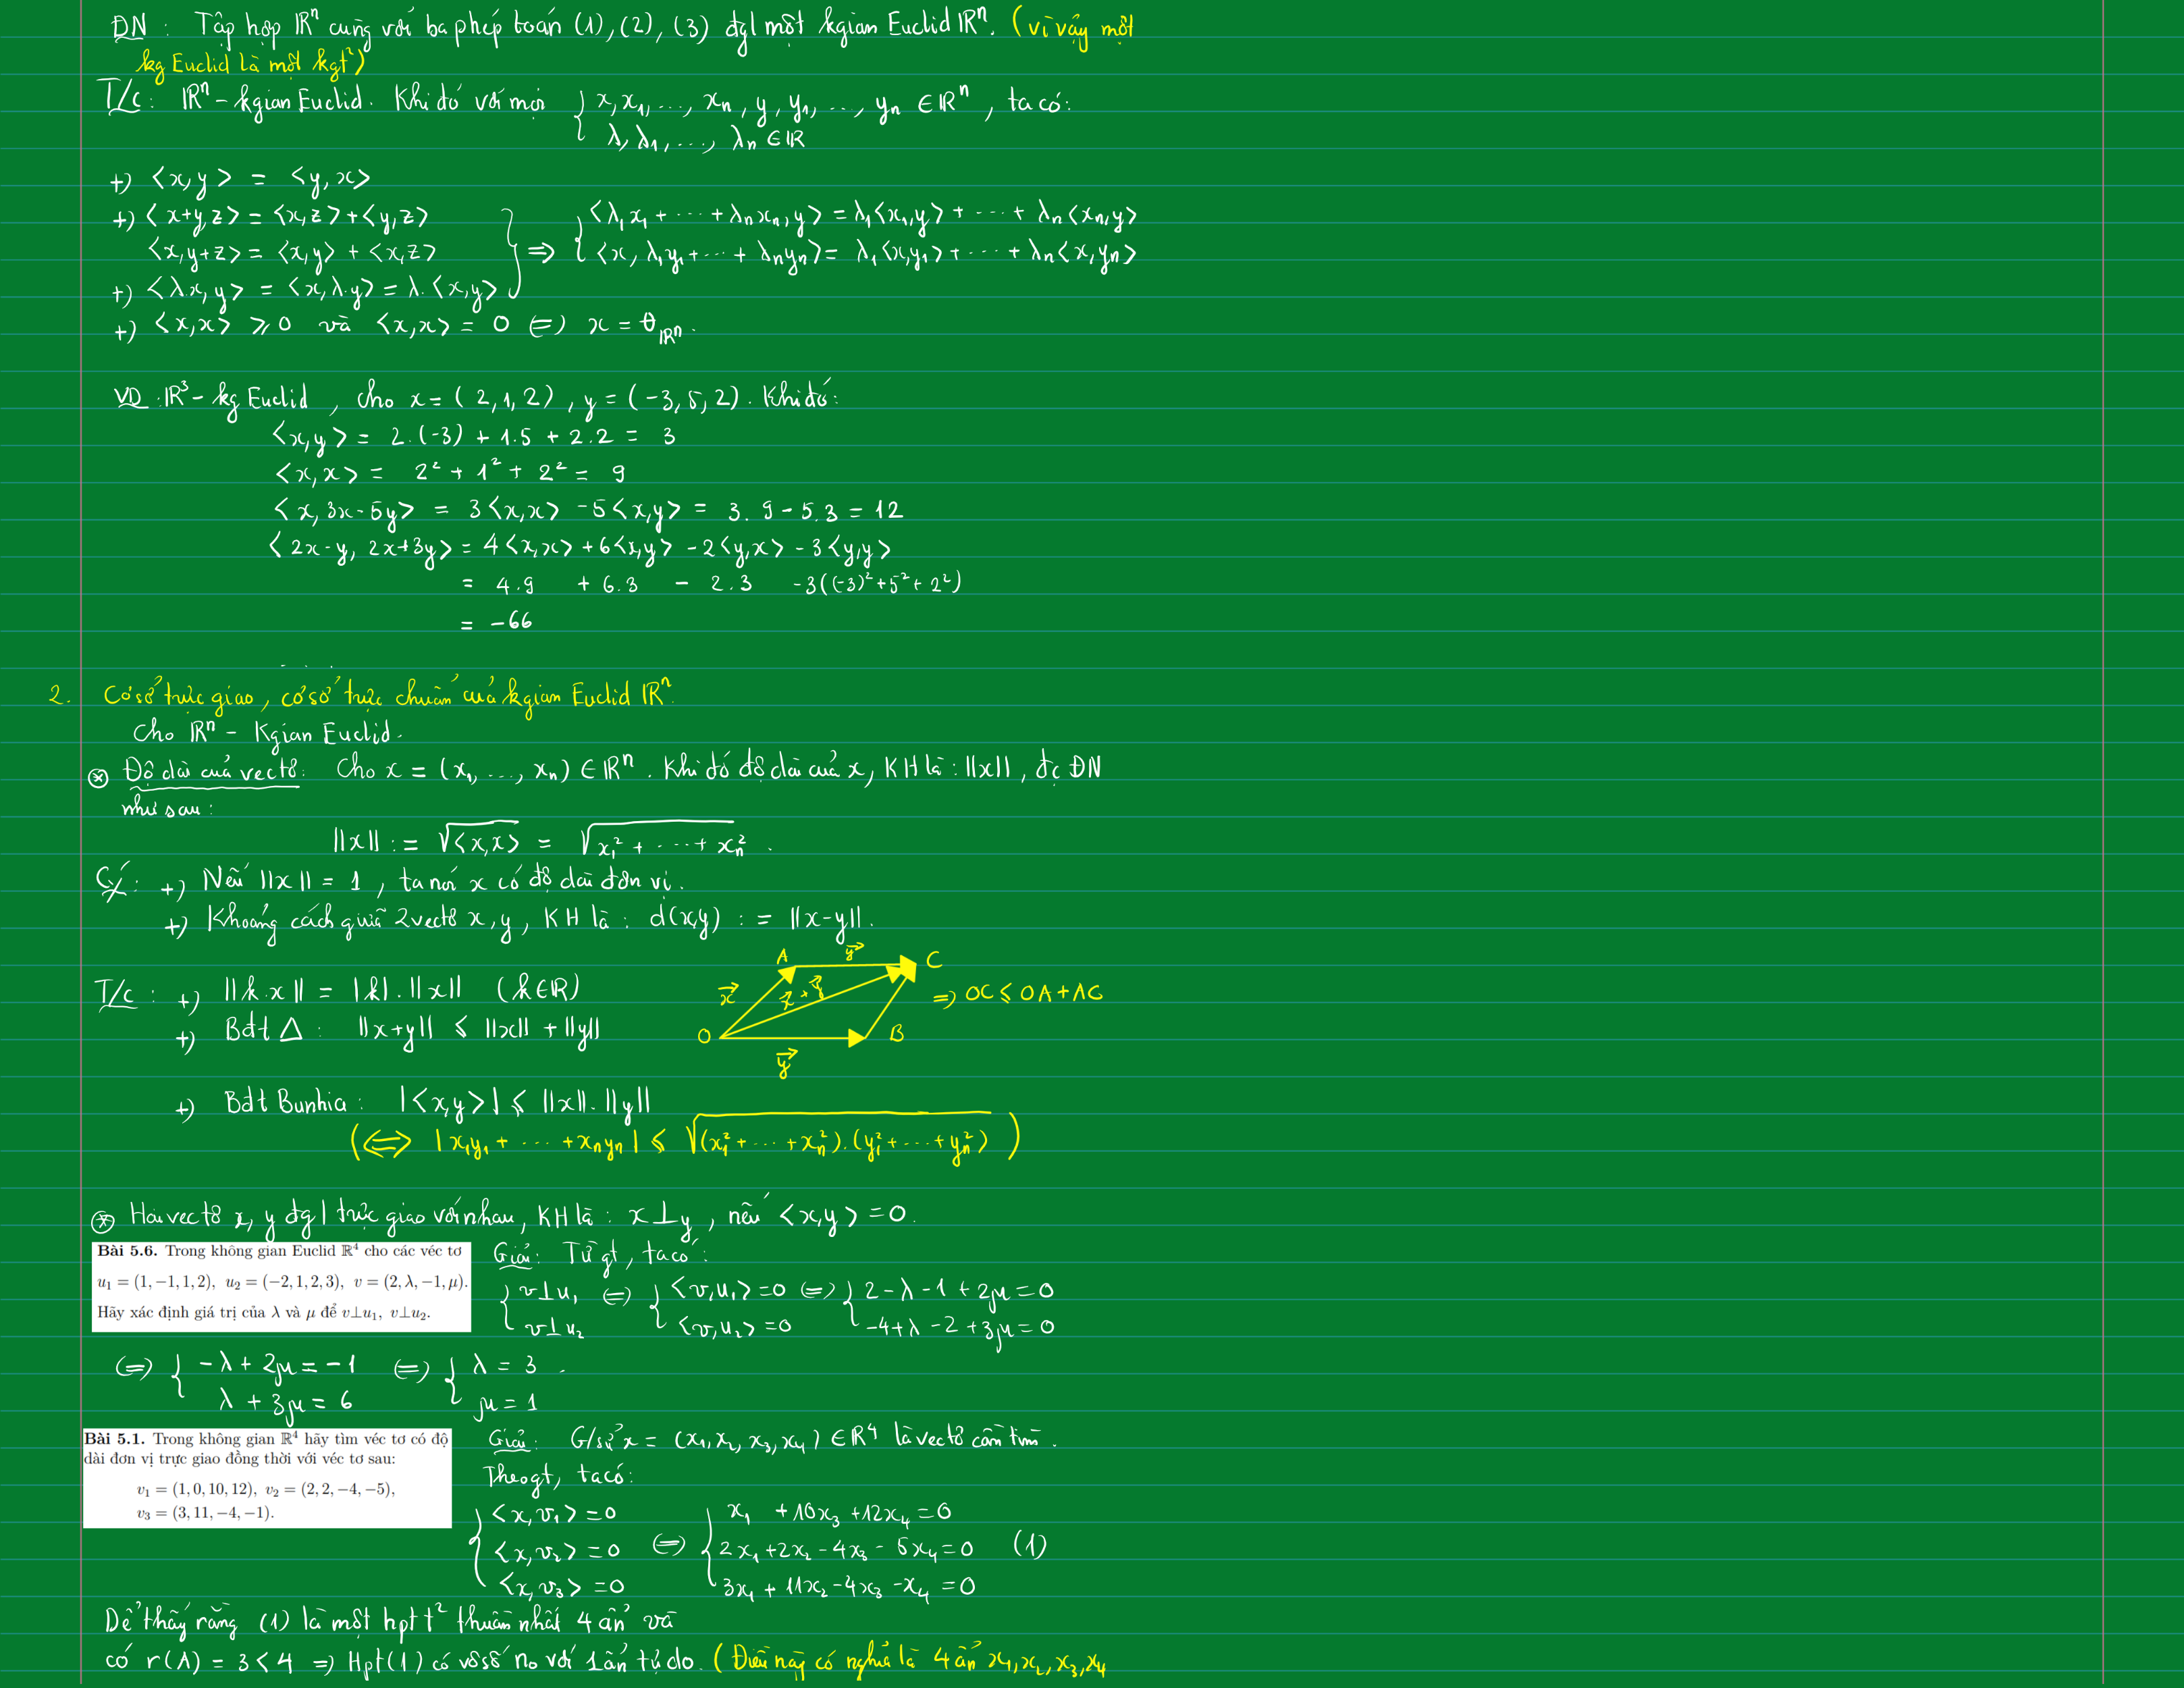 ĐN : Tập hợp ℝⁿ cùng với ba phép toán (1), (2), (3) đgl một kgian Euclid ℝⁿ. (vì vậy một
kg Euclid là một kgt²)
T/c: ℝⁿ - kgian Euclid. Khi đó với mọi { x, x₁, ..., xₙ, y, y₁, ..., yₙ ∈ ℝⁿ, ta có:
λ, λ₁, ..., λₙ ∈ ℝ
+) <x,y> = <y,x>
+) <x+y,z> = <x,z> + <y,z>
<x,y+z> = <x,y> + <x,z>
+) <λ.x, y> = <x, λ.y> = λ.<x,y>
} ⇒ { <λ₁x₁ + ... + λₙxₙ, y> = λ₁<x₁,y> + ... + λₙ<xₙ,y>
<x, λ₁y₁ + ... + λₙyₙ> = λ₁<x,y₁> + ... + λₙ<x,yₙ>
+) <x,x> ⩾ 0 và <x,x> = 0 ⇔ x = θ_ℝⁿ.
VD : ℝ³ - kg Euclid, cho x = (2,1,2), y = (-3,5,2). Khi đó:
<x,y> = 2.(-3) + 1.5 + 2.2 = 3
<x,x> = 2² + 1² + 2² = 9
<x, 3x-5y> = 3<x,x> - 5<x,y> = 3.9 - 5.3 = 12
<2x-y, 2x+3y> = 4<x,x> + 6<x,y> - 2<y,x> - 3<y,y>
= 4.9 + 6.3 - 2.3 - 3((-3)²+5²+2²)
= -66
2. Cơ sở trực giao, cơ sở trực chuẩn của kgian Euclid ℝⁿ.
Cho ℝⁿ - Kgian Euclid.
⊛ Độ dài của vectơ: Cho x = (x₁, ..., xₙ) ∈ ℝⁿ. Khi đó độ dài của x, KH là: ||x||, đc ĐN
như sau:
||x|| := √<x,x> = √(x₁² + ... + xₙ²).
CY: +) Nếu ||x|| = 1, ta nói x có độ dài đơn vị.
+) Khoảng cách giữa 2 vectơ x, y, KH là: d(x,y) := ||x-y||.
T/c : +) ||k.x|| = |k|.||x|| (k∈ℝ)
+) Bđt Δ: ||x+y|| ⩽ ||x|| + ||y||
A y⃗ C
x⃗ x⃗+y⃗ ⇒ OC ⩽ OA + AC
O B
y⃗
+) Bđt Bunhia: |<x,y>| ⩽ ||x||.||y||
(⇔ |x₁y₁ + ... + xₙyₙ| ⩽ √((x₁² + ... + xₙ²).(y₁² + ... + yₙ²)))
⊛ Hai vectơ x, y đgl trực giao với nhau, KH là: x⊥y, nếu <x,y> = 0.
Bài 5.6. Trong không gian Euclid ℝ⁴ cho các véc tơ
u₁ = (1, −1, 1, 2), u₂ = (−2, 1, 2, 3), v = (2, λ, −1, μ).
Hãy xác định giá trị của λ và μ để v⊥u₁, v⊥u₂.
Giải: Từ gt, ta có:
{ v⊥u₁ ⇔ { <v,u₁> = 0 ⇔ { 2 - λ - 1 + 2μ = 0
v⊥u₂ <v,u₂> = 0 -4 + λ - 2 + 3μ = 0
⇔ { -λ + 2μ = -1 ⇔ { λ = 3.
λ + 3μ = 6 μ = 1
Bài 5.1. Trong không gian ℝ⁴ hãy tìm véc tơ có độ
dài đơn vị trực giao đồng thời với véc tơ sau:
v₁ = (1, 0, 10, 12), v₂ = (2, 2, −4, −5),
v₃ = (3, 11, −4, −1).
Giải: G/sử x = (x₁, x₂, x₃, x₄) ∈ ℝ⁴ là vectơ cần tìm.
Theo gt, ta có:
{ <x,v₁> = 0 { x₁ + 10x₃ + 12x₄ = 0
<x,v₂> = 0 ⇔ 2x₁ + 2x₂ - 4x₃ - 5x₄ = 0 (1)
<x,v₃> = 0 3x₁ + 11x₂ - 4x₃ - x₄ = 0
Dễ thấy rằng (1) là một hptt² thuần nhất 4 ẩn và
có r(A) = 3 < 4 ⇒ Hpt(1) có vô số no với 1 ẩn tự do. (Điều này có nghĩa là 4 ẩn x₁, x₂, x₃, x₄